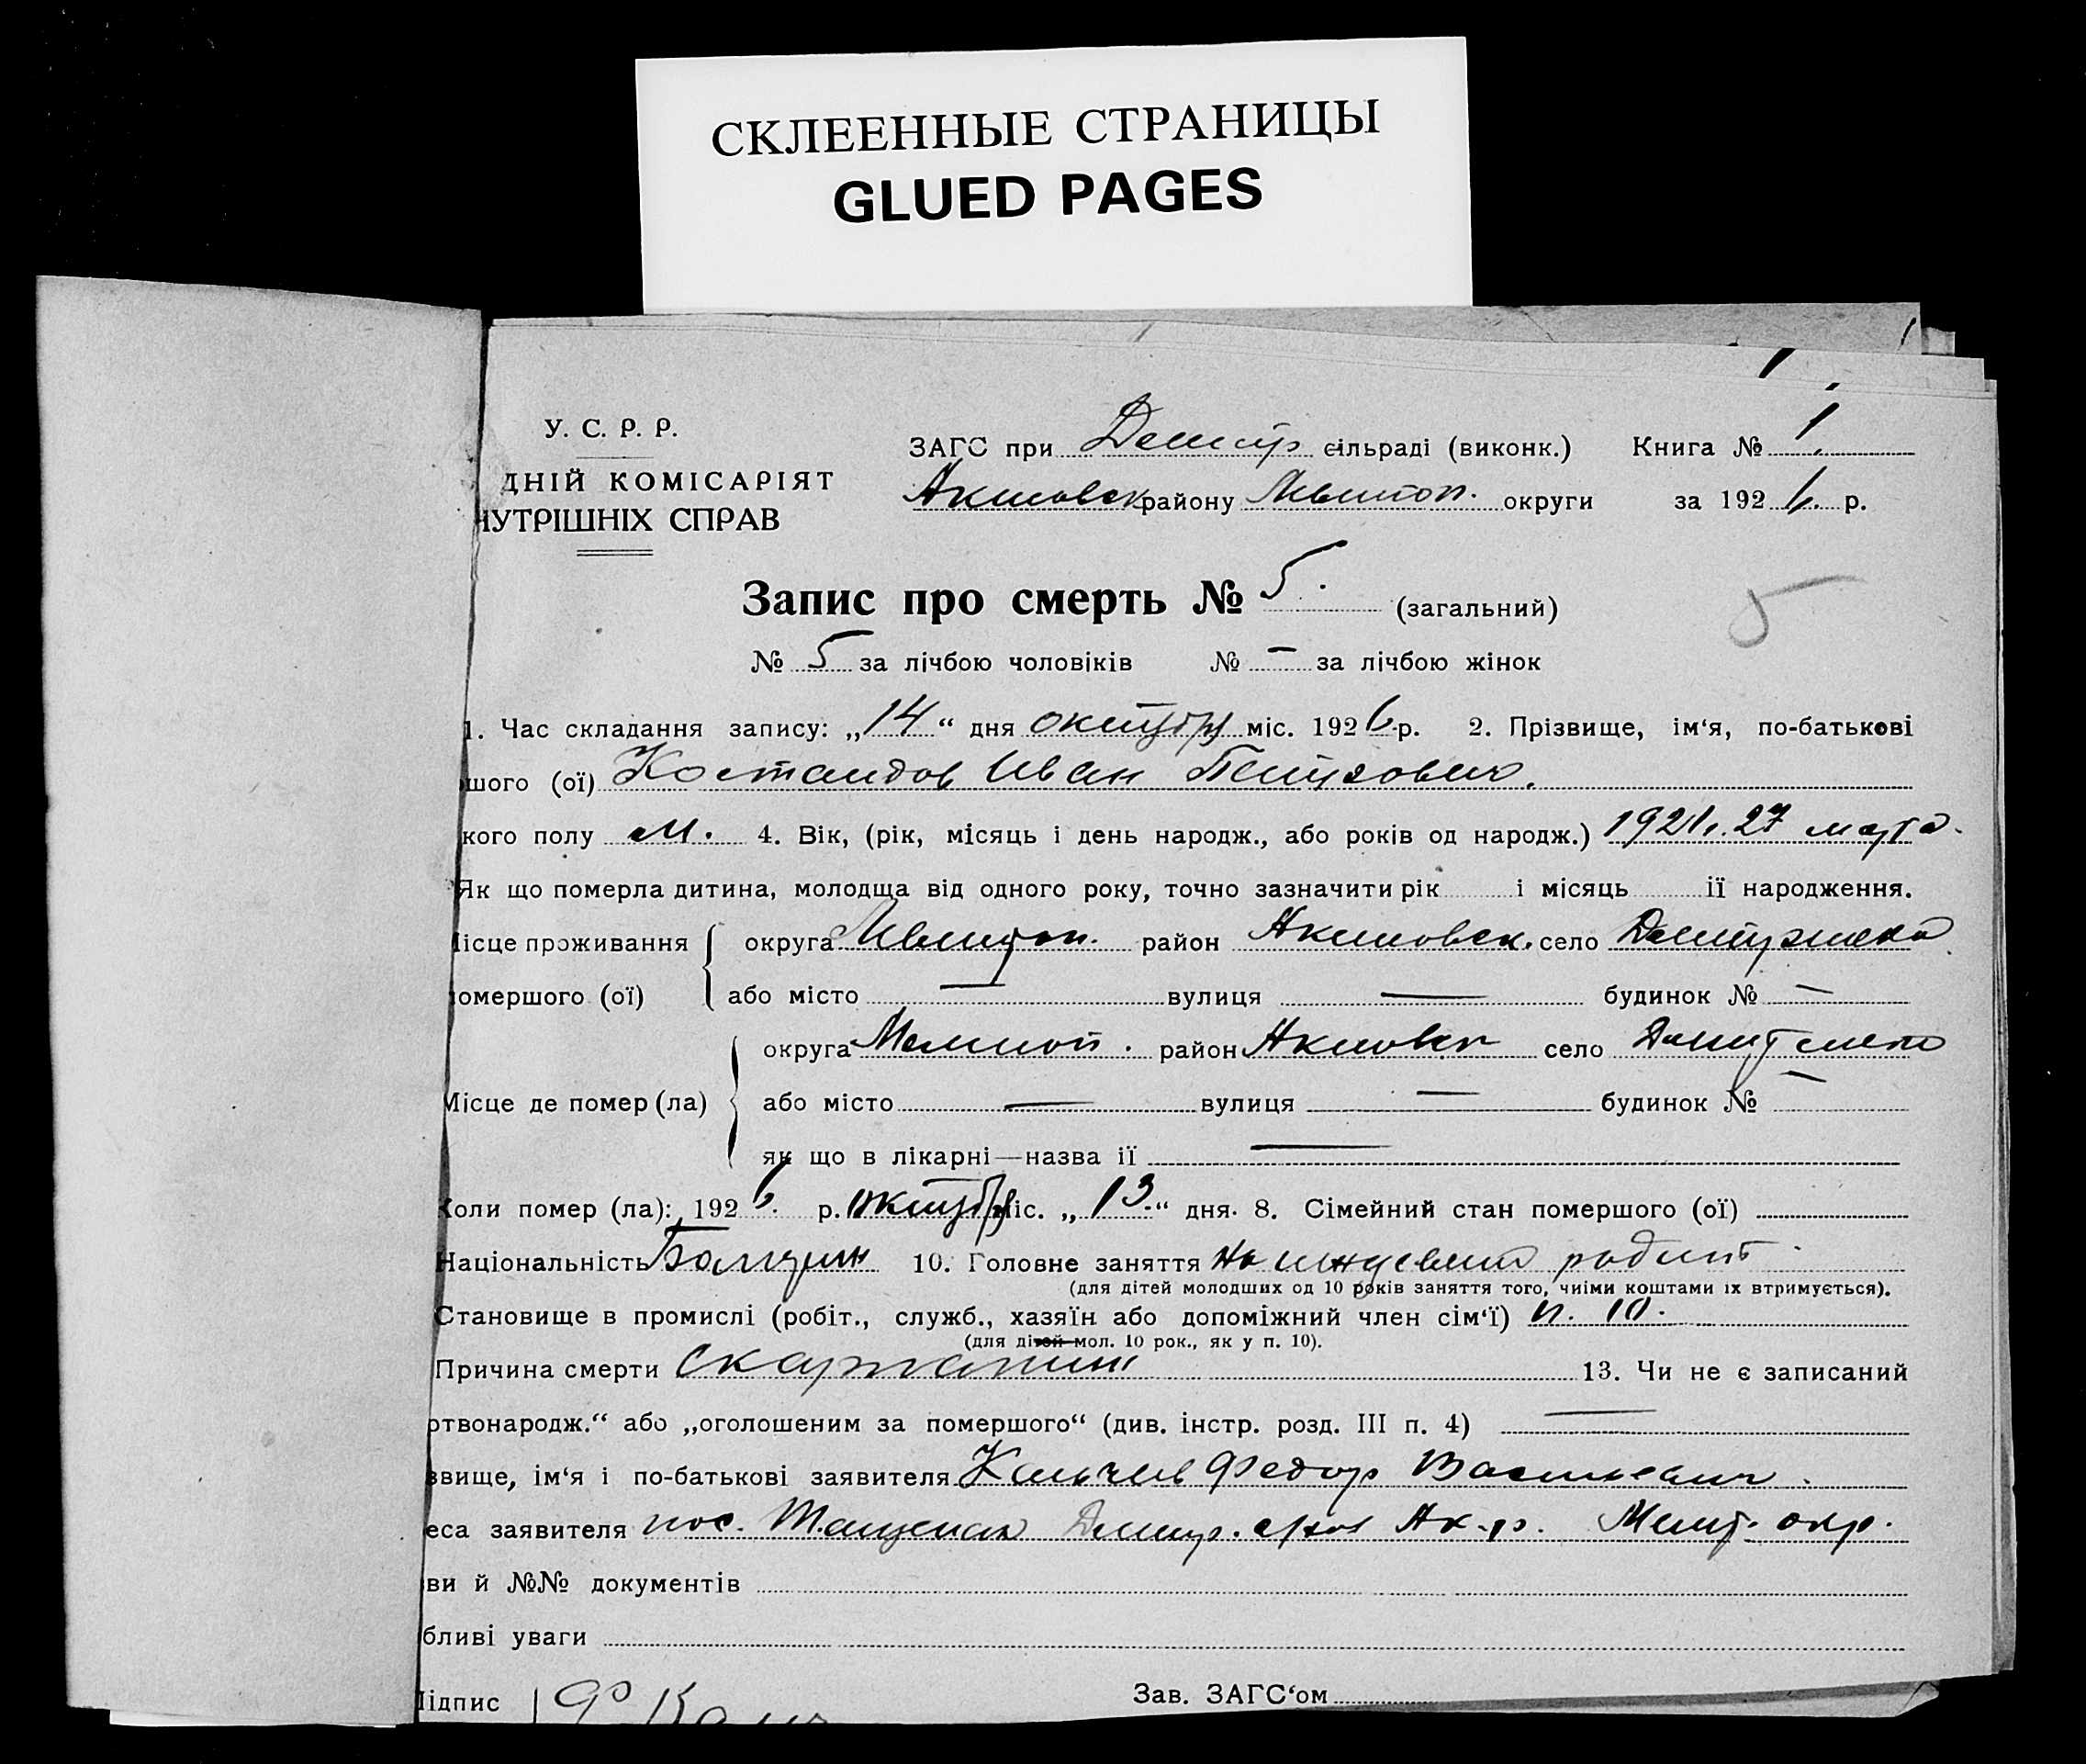 СКЛЕЕННЫЕ СТРАНИЦЫ
GLUED PAGES
У. С. Р. Р.
ДНІЙ КОМІСАРІЯТ
НУТРІШНІХ СПРАВ
ЗАГС при сільраді (виконк.) Книга № 1.
Акимовск району округи за 1926. р.
Запис про смерть № 5. (загальний)
5
№ 5 за лічбою чоловіків № – за лічбою жінок
1. Час складання запису: „14“ дня октября міс. 1926 р. 2. Прізвище, ім‘я, по-батькові
шого (ої) Костандов Иван Петрович.
кого полу м. 4. Вік, (рік, місяць і день народж., або років од народж.) 27 марта.
Як що померла дитина, молодща від одного року, точно зазначити рік і місяць її народження.
Місце проживання округа район Акимовск. село
помершого (ої) або місто — вулиця — будинок № –
округа Мелитоп. район Акимовск село
Місце де помер (ла) або місто — вулиця — будинок № –
як що в лікарні—назва її —
Коли помер (ла): 1926. р. октября міс. „13.“ дня. 8. Сімейний стан помершого (ої)
Національність Болгарин 10. Головне заняття На родит.
(для дітей молодших од 10 років заняття того, чиїми коштами їх втримується).
Становище в промислі (робіт., служб., хазяїн або допоміжний член сім‘ї) п. 10.
(для дітей мол. 10 рок., як у п. 10).
Причина смерти скарлатина 13. Чи не є записаний
ртвонародж.“ або „оголошеним за помершого“ (див. інстр. розд. III п. 4) —
звище, ім‘я і по-батькові заявителя Кальчев Федор Васильевич.
еса заявителя пос. Ак. р. Мелит. окр.
ви й №№ документів
бливі уваги
Підпис Ф Каль Зав. ЗАГС‘ом